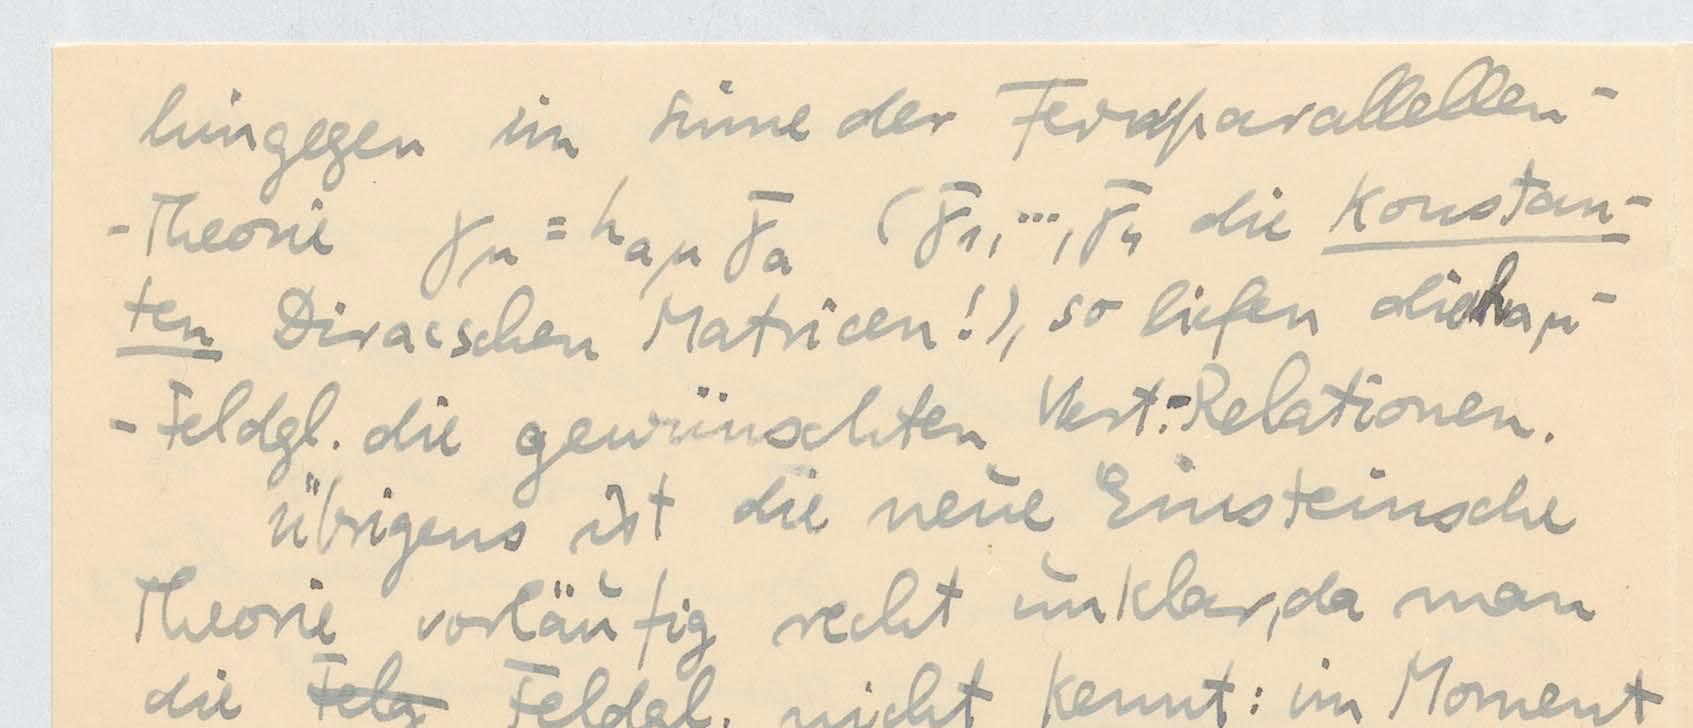 hingegen im Sinne der Fernparallellen-
-Theorie γμ = haμ γ̄a (γ̄1, ..., γ̄4 die Konstan-
ten Diracschen Matricen!), so liefen die haμ-
-Feldgl. die gewünschten Vert.-Relationen.
Übrigens ist die neue Einsteinsche
Theorie vorläufig recht unklar, da man
die Felg Feldgl. nicht kennt: im Moment